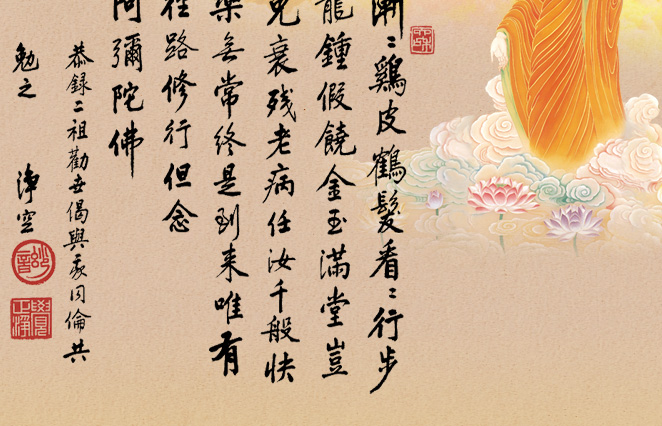 漸〻鷄皮鶴髮看〻行步
龍鍾假饒金玉滿堂豈
免衰残老病任汝千般快
樂無常終是到来唯有
徑路修行但念
阿彌陀佛
恭録二祖勸世偈與我同倫共
勉之 淨空